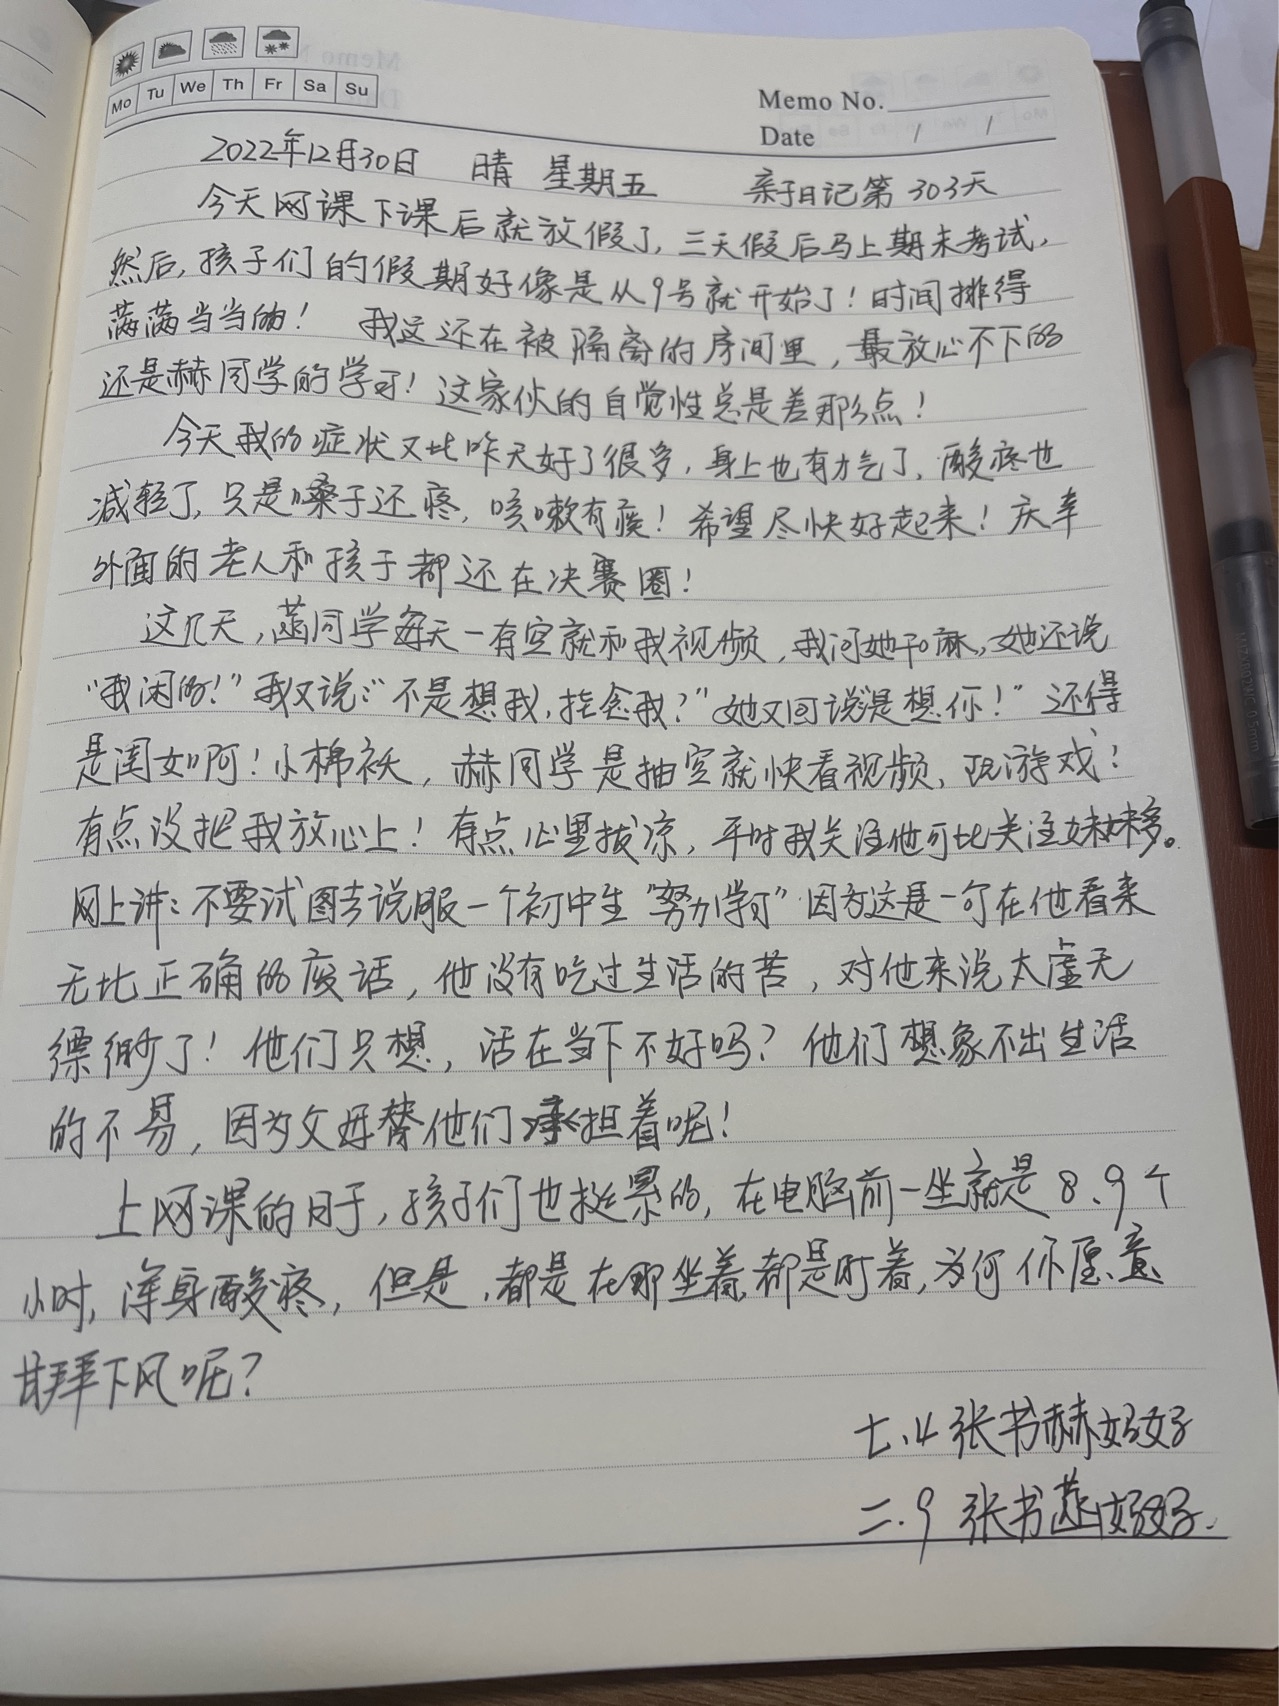 Mo Tu We Th Fr Sa Su
Memo No.
Date / /
2022年12月30日 晴 星期五 亲子日记第303天
今天网课下课后就放假了,三天假后马上期末考试,
然后,孩子们的假期好像是从9号就开始了!时间排得
满满当当的! 我这还在被隔离的房间里,最放心不下的
还是赫同学的学习!这家伙的自觉性总是差那么点!
今天我的症状又比昨天好了很多,身上也有力气了,酸疼也
减轻了,只是嗓子还疼,咳嗽有痰!希望尽快好起来!庆幸
外面的老人和孩子都还在决赛圈!
这几天,菡同学每天一有空就和我视频,我问她干嘛,她还说
“我闲的!”我又说:“不是想我,挂念我?”她又回说“是想你!”还得
是闺女啊!小棉袄,赫同学是抽空就快看视频、玩游戏!
有点没把我放心上!有点心里拔凉,平时我关注他可比关注妹妹多。
网上讲:不要试图去说服一个初中生“努力学习”因为这是一句在他看来
无比正确的废话,他没有吃过生活的苦,对他来说太虚无
缥缈了!他们只想,活在当下不好吗?他们想象不出生活
的不易,因为父母替他们承担着呢!
上网课的日子,孩子们也挺累的,在电脑前一坐就是8、9个
小时,浑身酸疼,但是,都是在那坐着,都是盯着,为何你愿意
甘拜下风呢?
七.4 张书赫妈妈
二.9 张书菡妈妈.